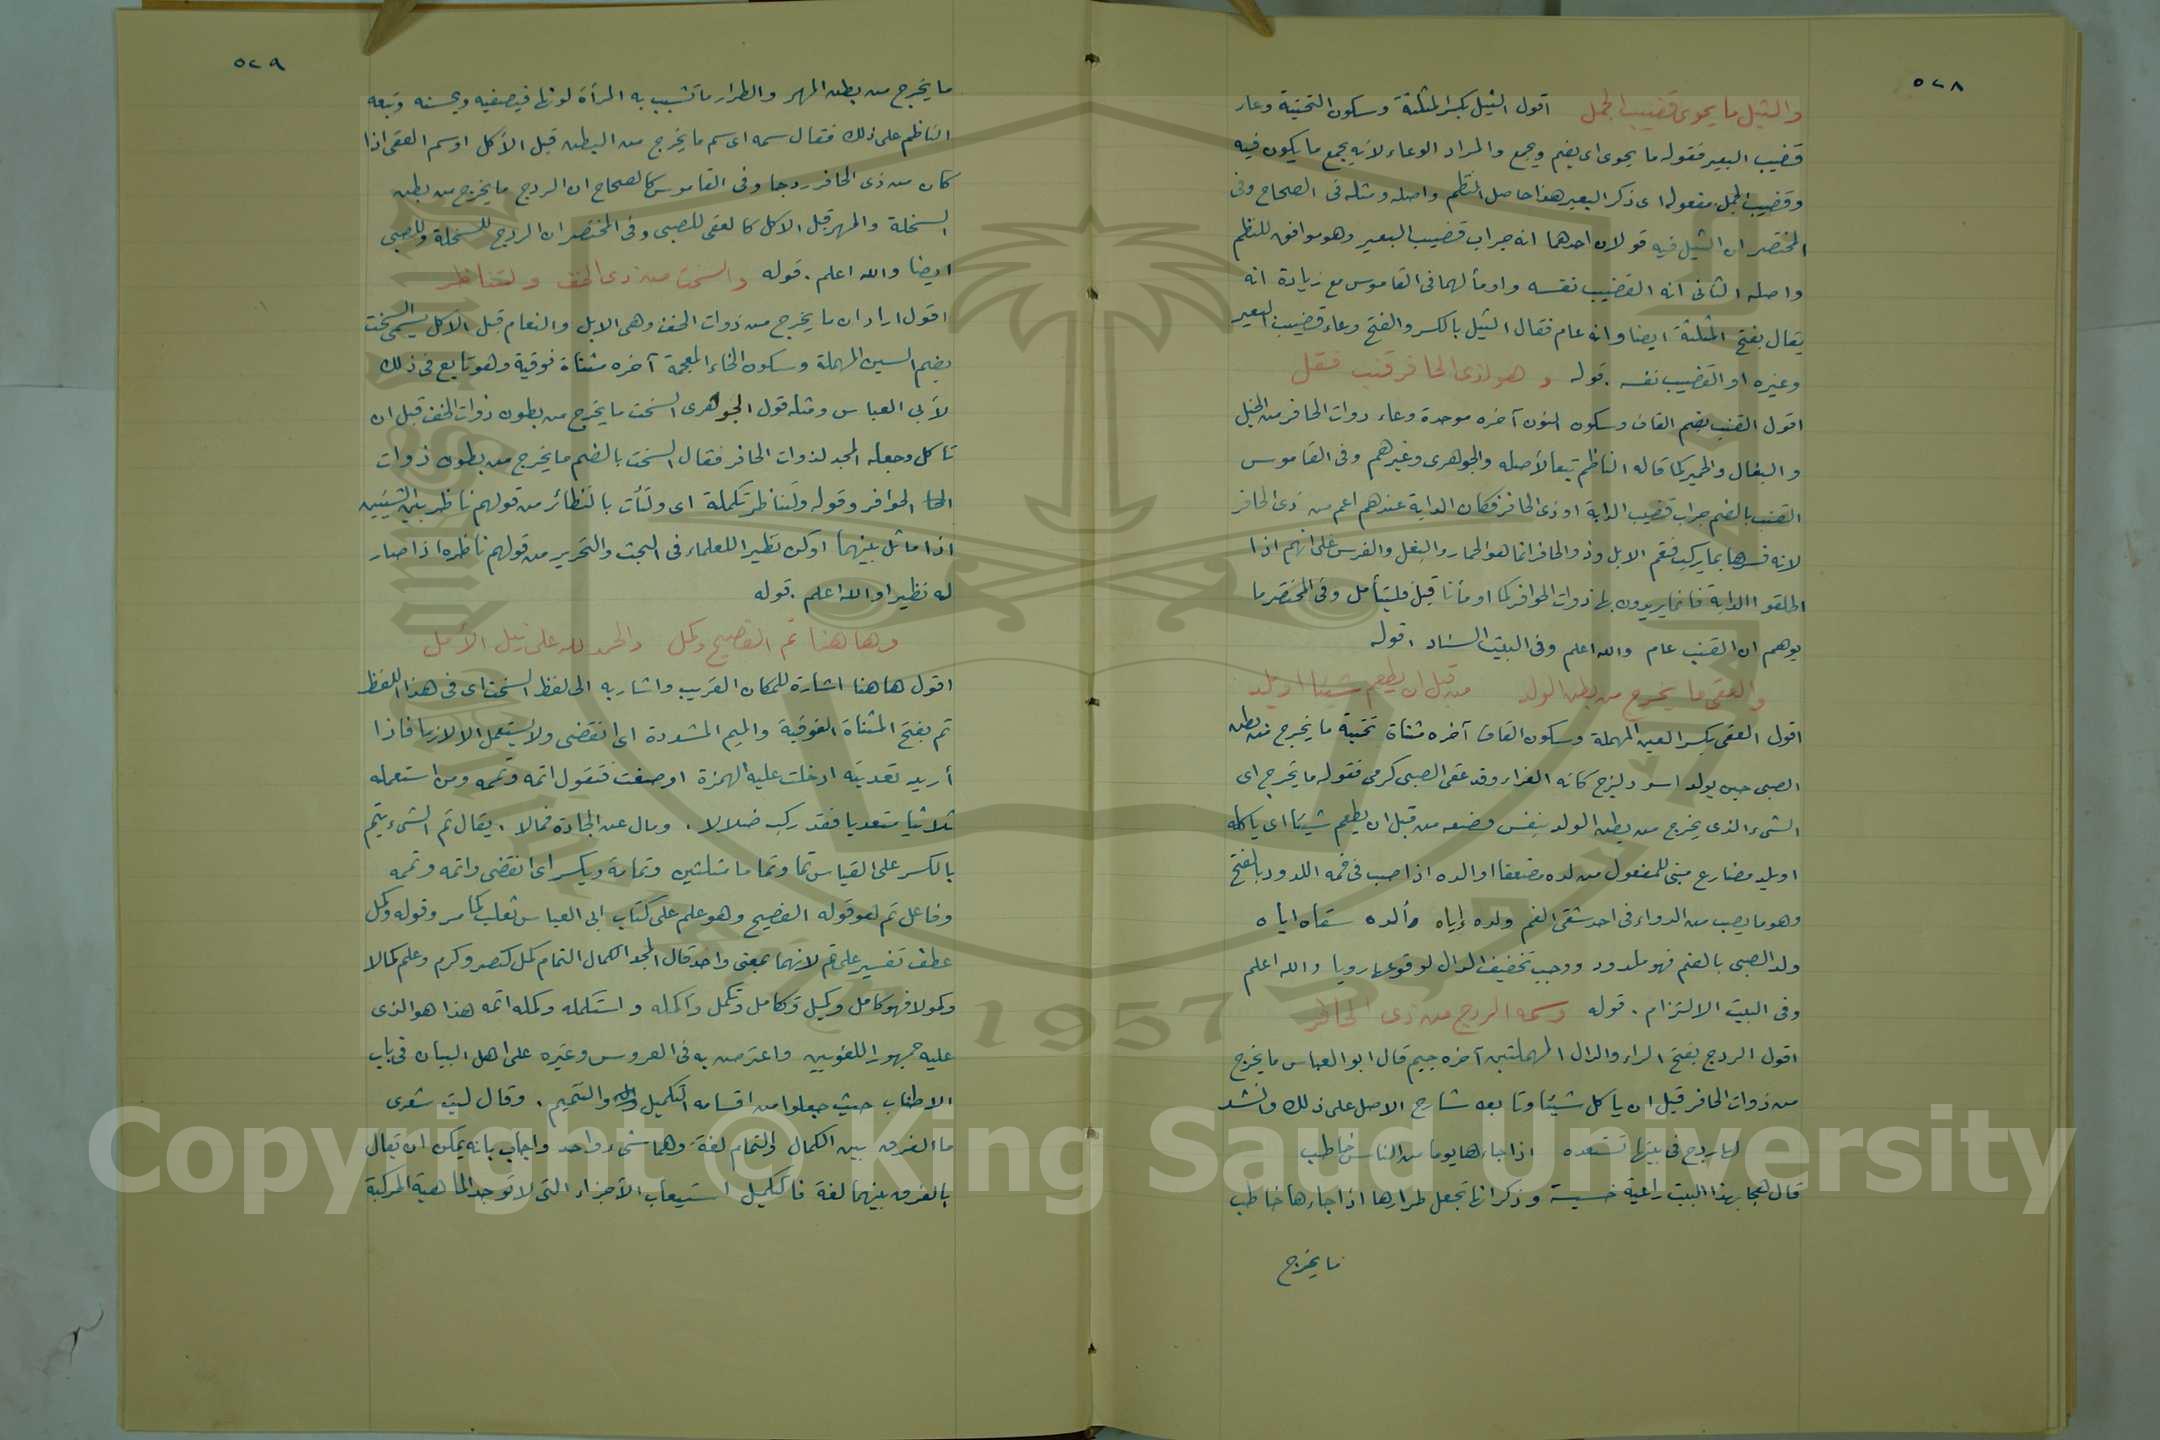 ٥٢٨
والثيل ما يحوى قضيب الجمل اقول الثيل بكسر المثلثة وسكون التحتية وعاء
قضيب البعير فقوله ما يحوى اى يضم ويجمع والمراد الوعاء لانه يجمع ما يكون فيه
وقضيب الجمل مفعوله اى ذكر البعير هذا حاصل النظم واصله ومثله فى الصحاح وفى
المختصر ان الثيل فيه قولان احدهما انه جراب قضيب البعير وهو موافق للنظم
واصله الثانى انه القضيب نفسه واومأ لهما فى القاموس مع زيادة انه
يقال بفتح المثلثة ايضا وانه عام فقال الثيل بالكسر والفتح وعاء قضيب البعير
وغيره او القضيب نفسه . قوله وهو لذى الحافر قنب فقل
اقول القنب بضم القاف وسكون النون آخره موحدة وعاء ذوات الحافر من الخيل
والبغال والحمير كما قاله الناظم تبعا لأصله والجوهرى وغيرهم وفى القاموس
القنب بالضم جراب قضيب الدابة او ذى الحافر فكان الدابة عندهم اعم من ذى الحافر
لانه فسرها بما يركب فتعم الابل وذو الحافر انما هو الحمار والبغل والفرس على انهم اذا
اطلقوا الدابة فانما يريدون بها ذوات الحوافر كما اومأنا قبل فليتأمل وفى المختصر ما
يوهم ان القنب عام والله اعلم وفى البيت السناد . قوله
والعقى ما يخرج من بطن الولد من قبل ان يطعم شيئا او يلد
اقول العقى بكسر العين المهملة وسكون القاف آخره مثناة تحتية ما يخرج من بطن
الصبى حين يولد اسود لزج كانه الغراء وقد عقى الصبى كرمى فقوله ما يخرج اى
الشىء الذى يخرج من بطن الولد بنفس وضعه من قبل ان يطعم شيئا اى ياكله
او يلد مضارع مبنى للمفعول من لده مضعفا او الده اذا صب فى فمه اللدود بالفتح
وهو ما يصب من الدواء فى احد شقى الفم ولده إياه وألده سقاه اياه
ولد الصبى بالضم فهو ملدود ووجب تخفيف الدال لوقوعها رويا والله اعلم
وفى البيت الالتزام . قوله وسمه الردج من ذى الحافر
اقول الردج بفتح الراء والدال المهملتين آخره جيم قال ابو العباس ما يخرج
من ذوات الحافر قبل ان ياكل شيئا وتابعه شارح الاصل على ذلك وانشد
لها ردج فى بيتها تستعده اذا جاءها يوما من الناس خاطب
قال هجا بهذا البيت راعية خسيسة وذكر انها تجعل طرارها اذا جاءها خاطب
ما يخرج
٥٢٩
ما يخرج من بطن المهر والطرار ما تشبب به المرأة لونها فيصفيه ويحسنه وتبعه
الناظم على ذلك فقال سمه اى سم ما يخرج من البطن قبل الأكل اوسم العقى اذا
كان من ذى الحافر ردجا وفى القاموس كالصحاح ان الردج ما يخرج من بطن
السخلة والمهر قبل الاكل كالعقى للصبى وفى المختصر ان الردج للسخلة وللصبى
ايضا والله اعلم . قوله والسخت من ذى الخف ولتناظر
اقول اراد ان ما يخرج من ذوات الخف وهى الابل والنعام قبل الاكل يسمى السخت
بضم السين المهملة وسكون الخاء المعجمة آخره مثناة فوقية وهو تابع فى ذلك
لأبى العباس ومثله قول الجوهرى السخت ما يخرج من بطون ذوات الخف قبل ان
تاكل وجعله المجد لذوات الحافر فقال السخت بالضم ما يخرج من بطون ذوات
الحوافر وقوله ولتناظر تكملة اى ولتأت بالنظائر من قولهم ناظر بين الشيئين
اذا ماثل بينهما او كن نظيرا للعلماء فى البحث والتحرير من قولهم ناظره اذا صار
له نظيرا والله اعلم . قوله
وها هنا تم الفصيح وكمل والحمد لله على نيل الأمل
اقول ها هنا اشارة للمكان القريب واشار به الى لفظ السخت اى فى هذا اللفظ
تم بفتح المثناة الفوقية والميم المشددة اى انقضى ولا يستعمل الا لازما فاذا
أريد تعديته ادخلت عليه الهمزة او ضعفت فتقول اتمه وتممه ومن استعمله
ثلاثيا متعديا فقد ركب ضلالا . ومال عن الجادة فمالا . يقال تم الشىء يتم
بالكسر على القياس تما وتماما مثلثين وتمامة ويكسر اى انقضى واتمه وتممه
وفاعل تم هو قوله الفصيح وهو علم على كتاب ابى العباس ثعلب كما مر وقوله وكمل
عطف تفسير على تم لانهما بمعنى واحد قال المجد الكمال التمام كمل كنصر وكرم وعلم كمالا
وكمولا فهو كامل وكميل وتكامل وتكمل واكمله واستكمله وكمله اتمه هذا هو الذى
عليه جمهور اللغويين واعترض به فى العروس وغيره على اهل البيان فى باب
الاطناب حيث جعلوا من اقسامه التكميل والتتميم . وقال ليت شعرى
ما الفرق بين الكمال والتمام لغة وهما شىء واحد واجاب بانه يمكن ان يقال
بالفرق بينهما لغة فالتكميل استيعاب الأجزاء التى لا توجد الماهية المركبة
1957
Copyright © King Saud University